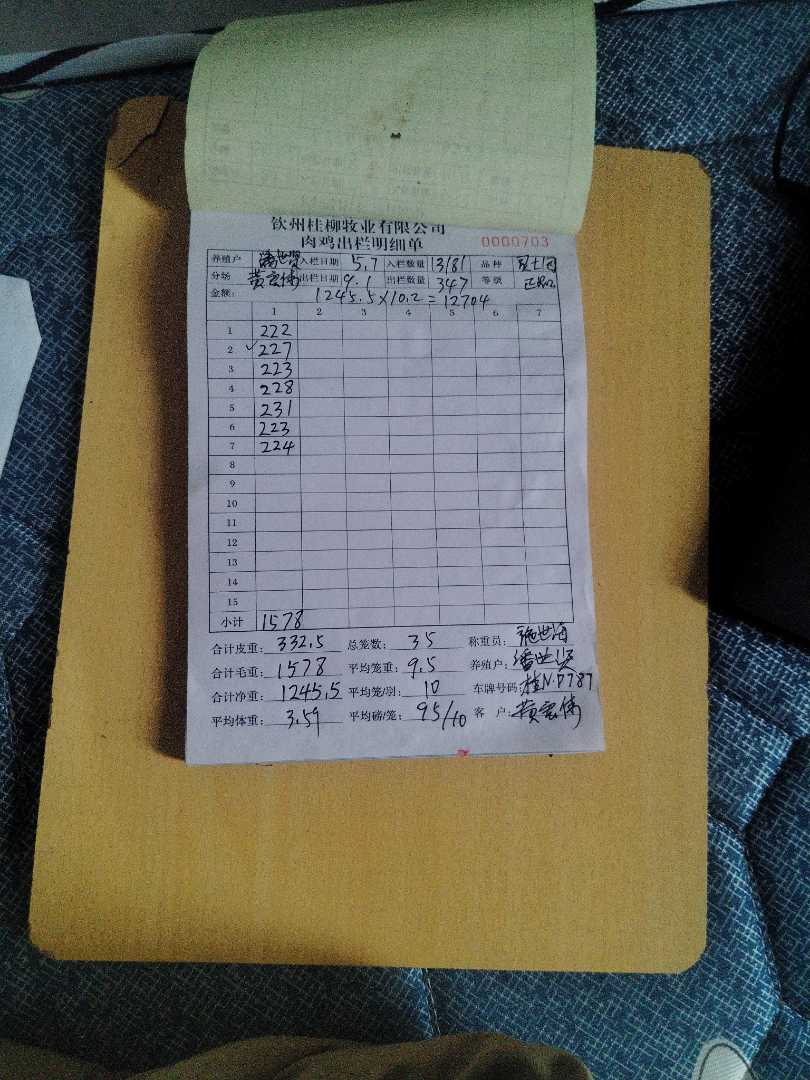 钦州桂柳牧业有限公司
肉鸡出栏明细单 0000703
养殖户 入栏日期 5.7 入栏数量 13181 品种
分场 黄宏伟 出栏日期 9.1 出栏数量 347 等级 正品
金额: 1245.5×10.2=12704
1 2 3 4 5 6 7
1 222
2 ✓227
3 223
4 228
5 231
6 223
7 224
8
9
10
11
12
13
14
15
小计 1578
合计皮重: 332.5 总笼数: 35 称重员:
合计毛重: 1578 平均笼重: 9.5 养殖户:
合计净重: 1245.5 平均笼/羽: 10 车牌号码: 桂N·D787
平均体重: 3.59 平均磅/笼: 95/10 客 户: 黄宏伟